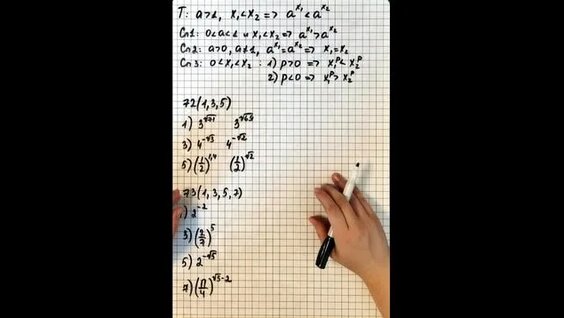 T: a>1, x₁<x₂ => a^x₁ < a^x₂
Сл1: 0<a<1 и x₁<x₂ => a^x₁ > a^x₂
Сл2: a>0, a≠1, a^x₁ = a^x₂ => x₁=x₂
Сл3: 0<x₁<x₂ : 1) p>0 => x₁^p < x₂^p
2) p<0 => x₁^p > x₂^p
72(1,3,5)
1) 3^√
3) 4^-√3 4^-√2
5) (1/2) (1/2)^√2
73(1,3,5,7)
1) 2^-2
3) (2/7)^5
5) 2^-√5
7) (П/4)^√5-2